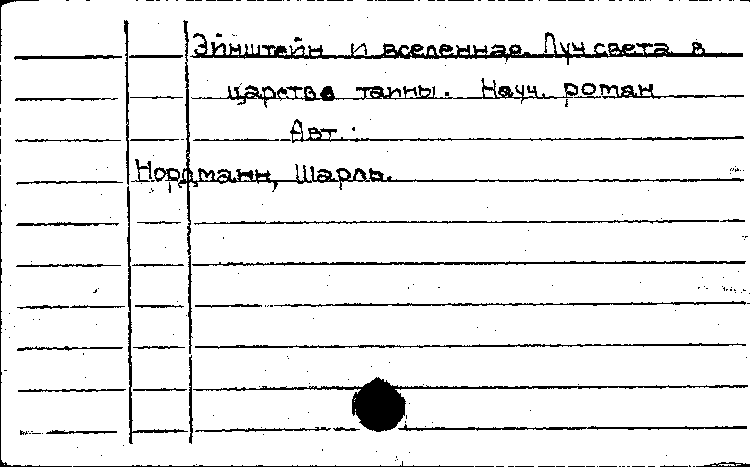 Эйнштейн и вселенная. Луч света в
царстве тайны. Науч. роман
Авт.:
Нордманн, Шарль.